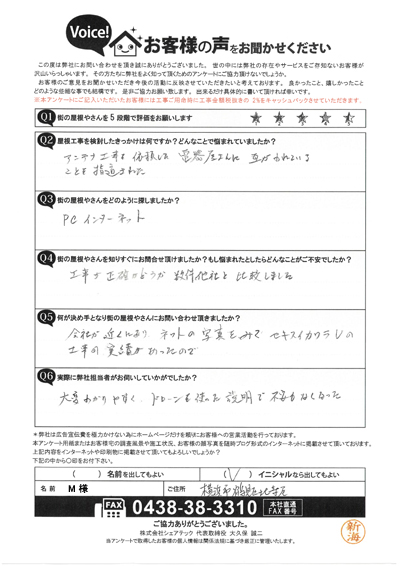 Voice! お客様の声をお聞かせください
この度は弊社にお問い合わせを頂き誠にありがとうございました。世の中には弊社の存在やサービスをご存知ないお客様が
沢山いらっしゃいます。その方たちに弊社をよく知って頂くためのアンケートにご協力頂けないでしょうか。
お客様のご意見をお聞かせいただき今後の活動に反映させていきたいと考えております。良かったこと、嬉しかったこと
どのような些細な事でも結構です。是非ご協力お願い致します。出来るだけ具体的に書いて頂ければ幸いです。
※本アンケートにご記入いただいたお客様には工事ご用命時に工事金額税抜きの2%をキャッシュバックさせていただきます。
Q1 街の屋根やさんを5段階で評価をお願いします
Q2 屋根工事を検討したきっかけは何ですか?どんなことで悩まれていましたか?
アンテナ工事を依頼した電器屋さんに瓦がわれている
ことを指摘された
Q3 街の屋根やさんをどのように探しましたか?
PC インターネット
Q4 街の屋根やさんを知りすぐにお問合せ頂けましたか?もし悩まれたとしたらどんなことがご不安でしたか?
工事が正確かどうか 数件他社と比較しました
Q5 何が決め手となり街の屋根やさんにお問い合わせ頂きましたか?
会社が近くにあり ネットの写真をみて セキスイカワラUの
工事の実績があったので
Q6 実際に弊社担当者がお伺いしていかがでしたか?
大変わかりやすく、ドローンを使った説明で不安もなくなった
＊弊社は広告宣伝費を極力かけない為にホームページだけを頼りにお客様への営業活動を行っております。
本アンケート用紙またはお客様宅の調査風景や施工状況、お客様の顔写真を随時ブログ形式のインターネットに掲載させて頂いております。
上記内容をインターネットや印刷物に掲載させて頂いてもよろしいでしょうか?
下記の中から○印をお付下さい。
( )名前を出してもよい (✓)イニシャルなら出してもよい
名前 M 様 ご住所 横浜市鶴見区北寺尾
FAX 0438-38-3310 本社直通 FAX番号
ご協力ありがとうございました。
株式会社シェアテック 代表取締役 大久保 誠二
当アンケートで取得したお客様の個人情報は関係法規に基づき適正に管理いたします。
新海